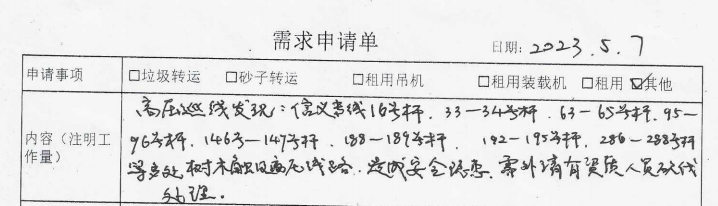 需求申请单
日期: 2023.5.7
申请事项 □垃圾转运 □砂子转运 □租用吊机 □租用装载机 □租用 ☑其他
高压巡线发现:信义高线16号杆、33-34号杆、63-65号杆、95-
内容(注明工作量) 96号杆、146号-147号杆、188-189号杆、192-195号杆、286-288号杆
等多处树木触及高压线路、造成安全隐患、需外请有资质人员砍伐
处理。